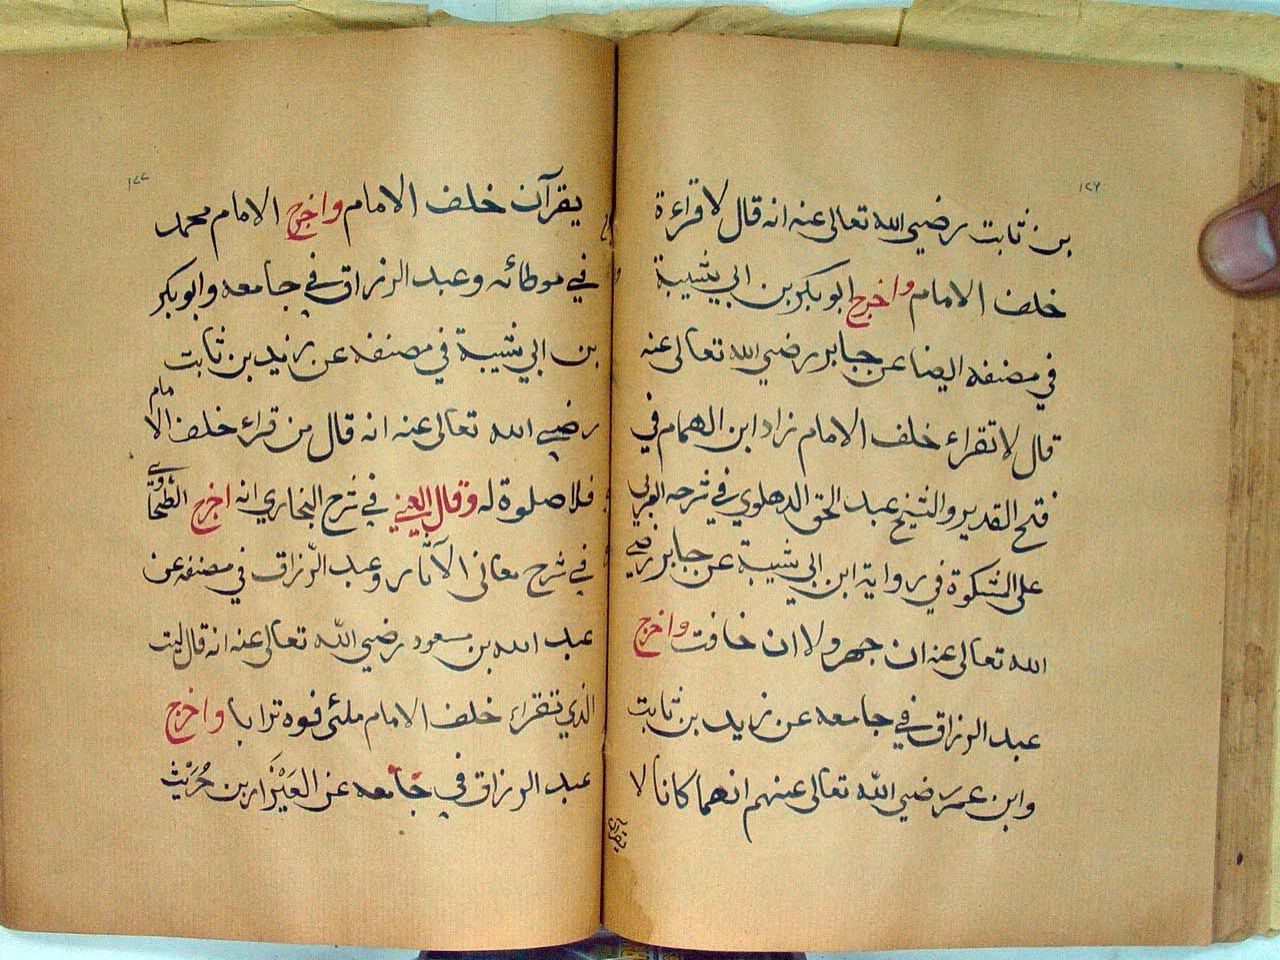 ١٢٦
بن ثابت رضي الله تعالى عنه انه قال لا قراءة
خلف الامام واخرج ابو بكر بن ابي شيبة
في مصنفه ايضا عن جابر رضي الله تعالى عنه
قال لا تقراء خلف الامام زاد ابن الهمام في
فتح القدير والشيخ عبد الحق الدهلوي في شرحه العربي
على المشكوة في رواية ابن ابي شيبة عن جابر رضي
الله تعالى عنه ان جهر ولا ان خافت واخرج
عبد الرزاق في جامعه عن زيد بن ثابت
وابن عمر رضي الله تعالى عنهم انهما كانا لا
يقرآن
١٢٧
يقرآن خلف الامام واخرج الامام محمد
في موطائه وعبد الرزاق في جامعه وابو بكر
بن ابي شيبة في مصنفه عن زيد بن ثابت
رضي الله تعالى عنه انه قال من قراء خلف الامام
فلا صلوة له وقال العيني في شرح البخاري انه اخرج الطحاوي
في شرح معاني الآثار وعبد الرزاق في مصنفه عن
عبد الله بن مسعود رضي الله تعالى عنه انه قال ليت
الذي تقراء خلف الامام ملئ فوه ترابا واخرج
عبد الرزاق في جامعه عن العيزار بن حريث